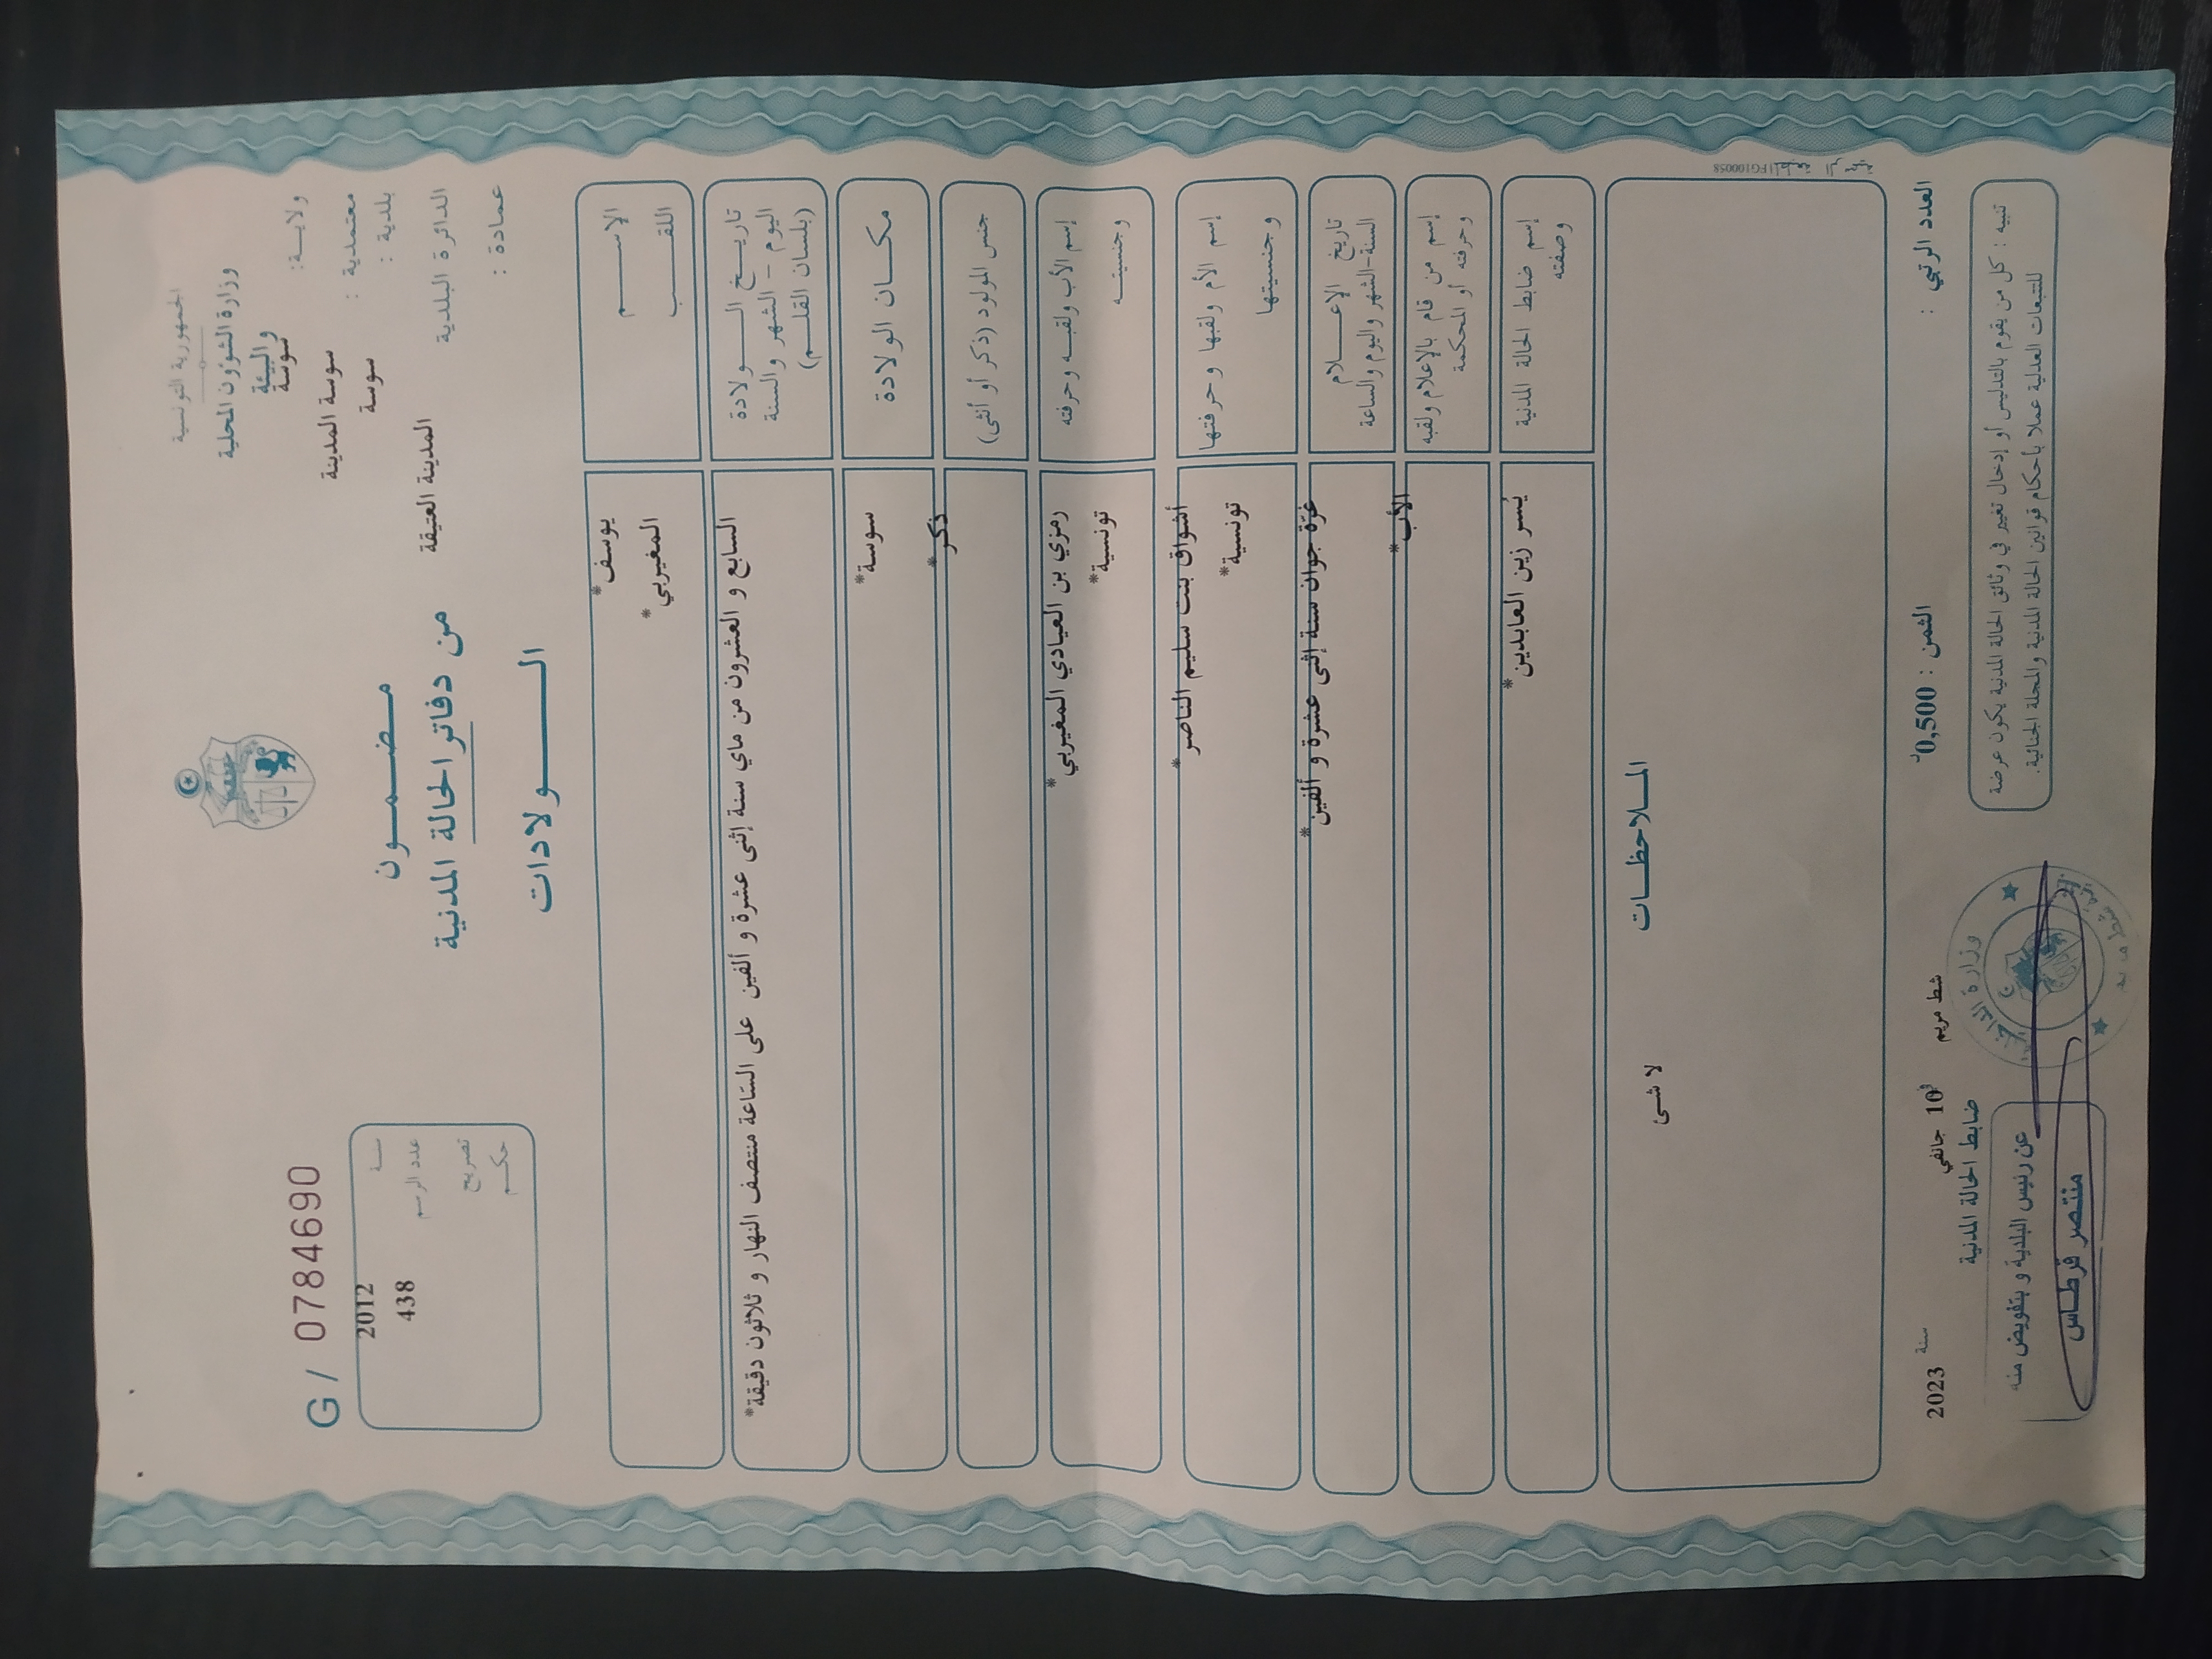 الجمهورية التونسية
وزارة الشؤون المحلية
والبيئة
ولايــة: سوسة
معتمدية : سوسة المدينة
بلدية : سوسة
الدائرة البلدية المدينة العتيقة
عمادة :
G / 0784690
سنـة 2012
عدد الرسم 438
تصريح
حكـم
مـضـمـــون
من دفاتر الحالة المدنية
الـــــولادات
الإســـــم يوسف*
اللقـــــب المغيربي*
تاريــخ الـــــولادة السابع و العشرون من ماي سنة إثنى عشرة و ألفين على السّاعة منتصف النهار و ثلاثون دقيقة*
اليوم - الشهر والسنة
(بلسان القلــم)
مكــان الولادة سوسة*
جنس المولود (ذكر أو أنثى) ذكر*
إسم الأب ولقبـه وحرفته رمزي بن العيادي المغيربي*
وجنسيتــه تونسية*
إسم الأم ولقبها وحرفتها أشواق بنت سليم الناصر*
وجنسيتها تونسية*
تاريخ الإعــــلام غرّة جوان سنة إثنى عشرة و ألفين*
السنة-الشهر واليوم والساعة
إسم من قام بالإعلام ولقبه الأب*
وحرفته أو المحكمة
إسم ضابط الحالة المدنية يُسر زين العابدين*
وصفته
المــلاحظــات
لا شئ
FG100058
العدد الرتبي :
الثمن : 0,500د
شط مريم في 10 جانفي سنة 2023
ضابط الحالة المدنية
تنبيه : كل من يقوم بالتدليس أو إدخال تغيير في وثائق الحالة المدنية يكون عرضة
للتتبعات العدلية عملا بأحكام قوانين الحالة المدنية والمجلة الجنائية.
عن رئيس البلدية و بتفويض منه
منتصر قرطاس